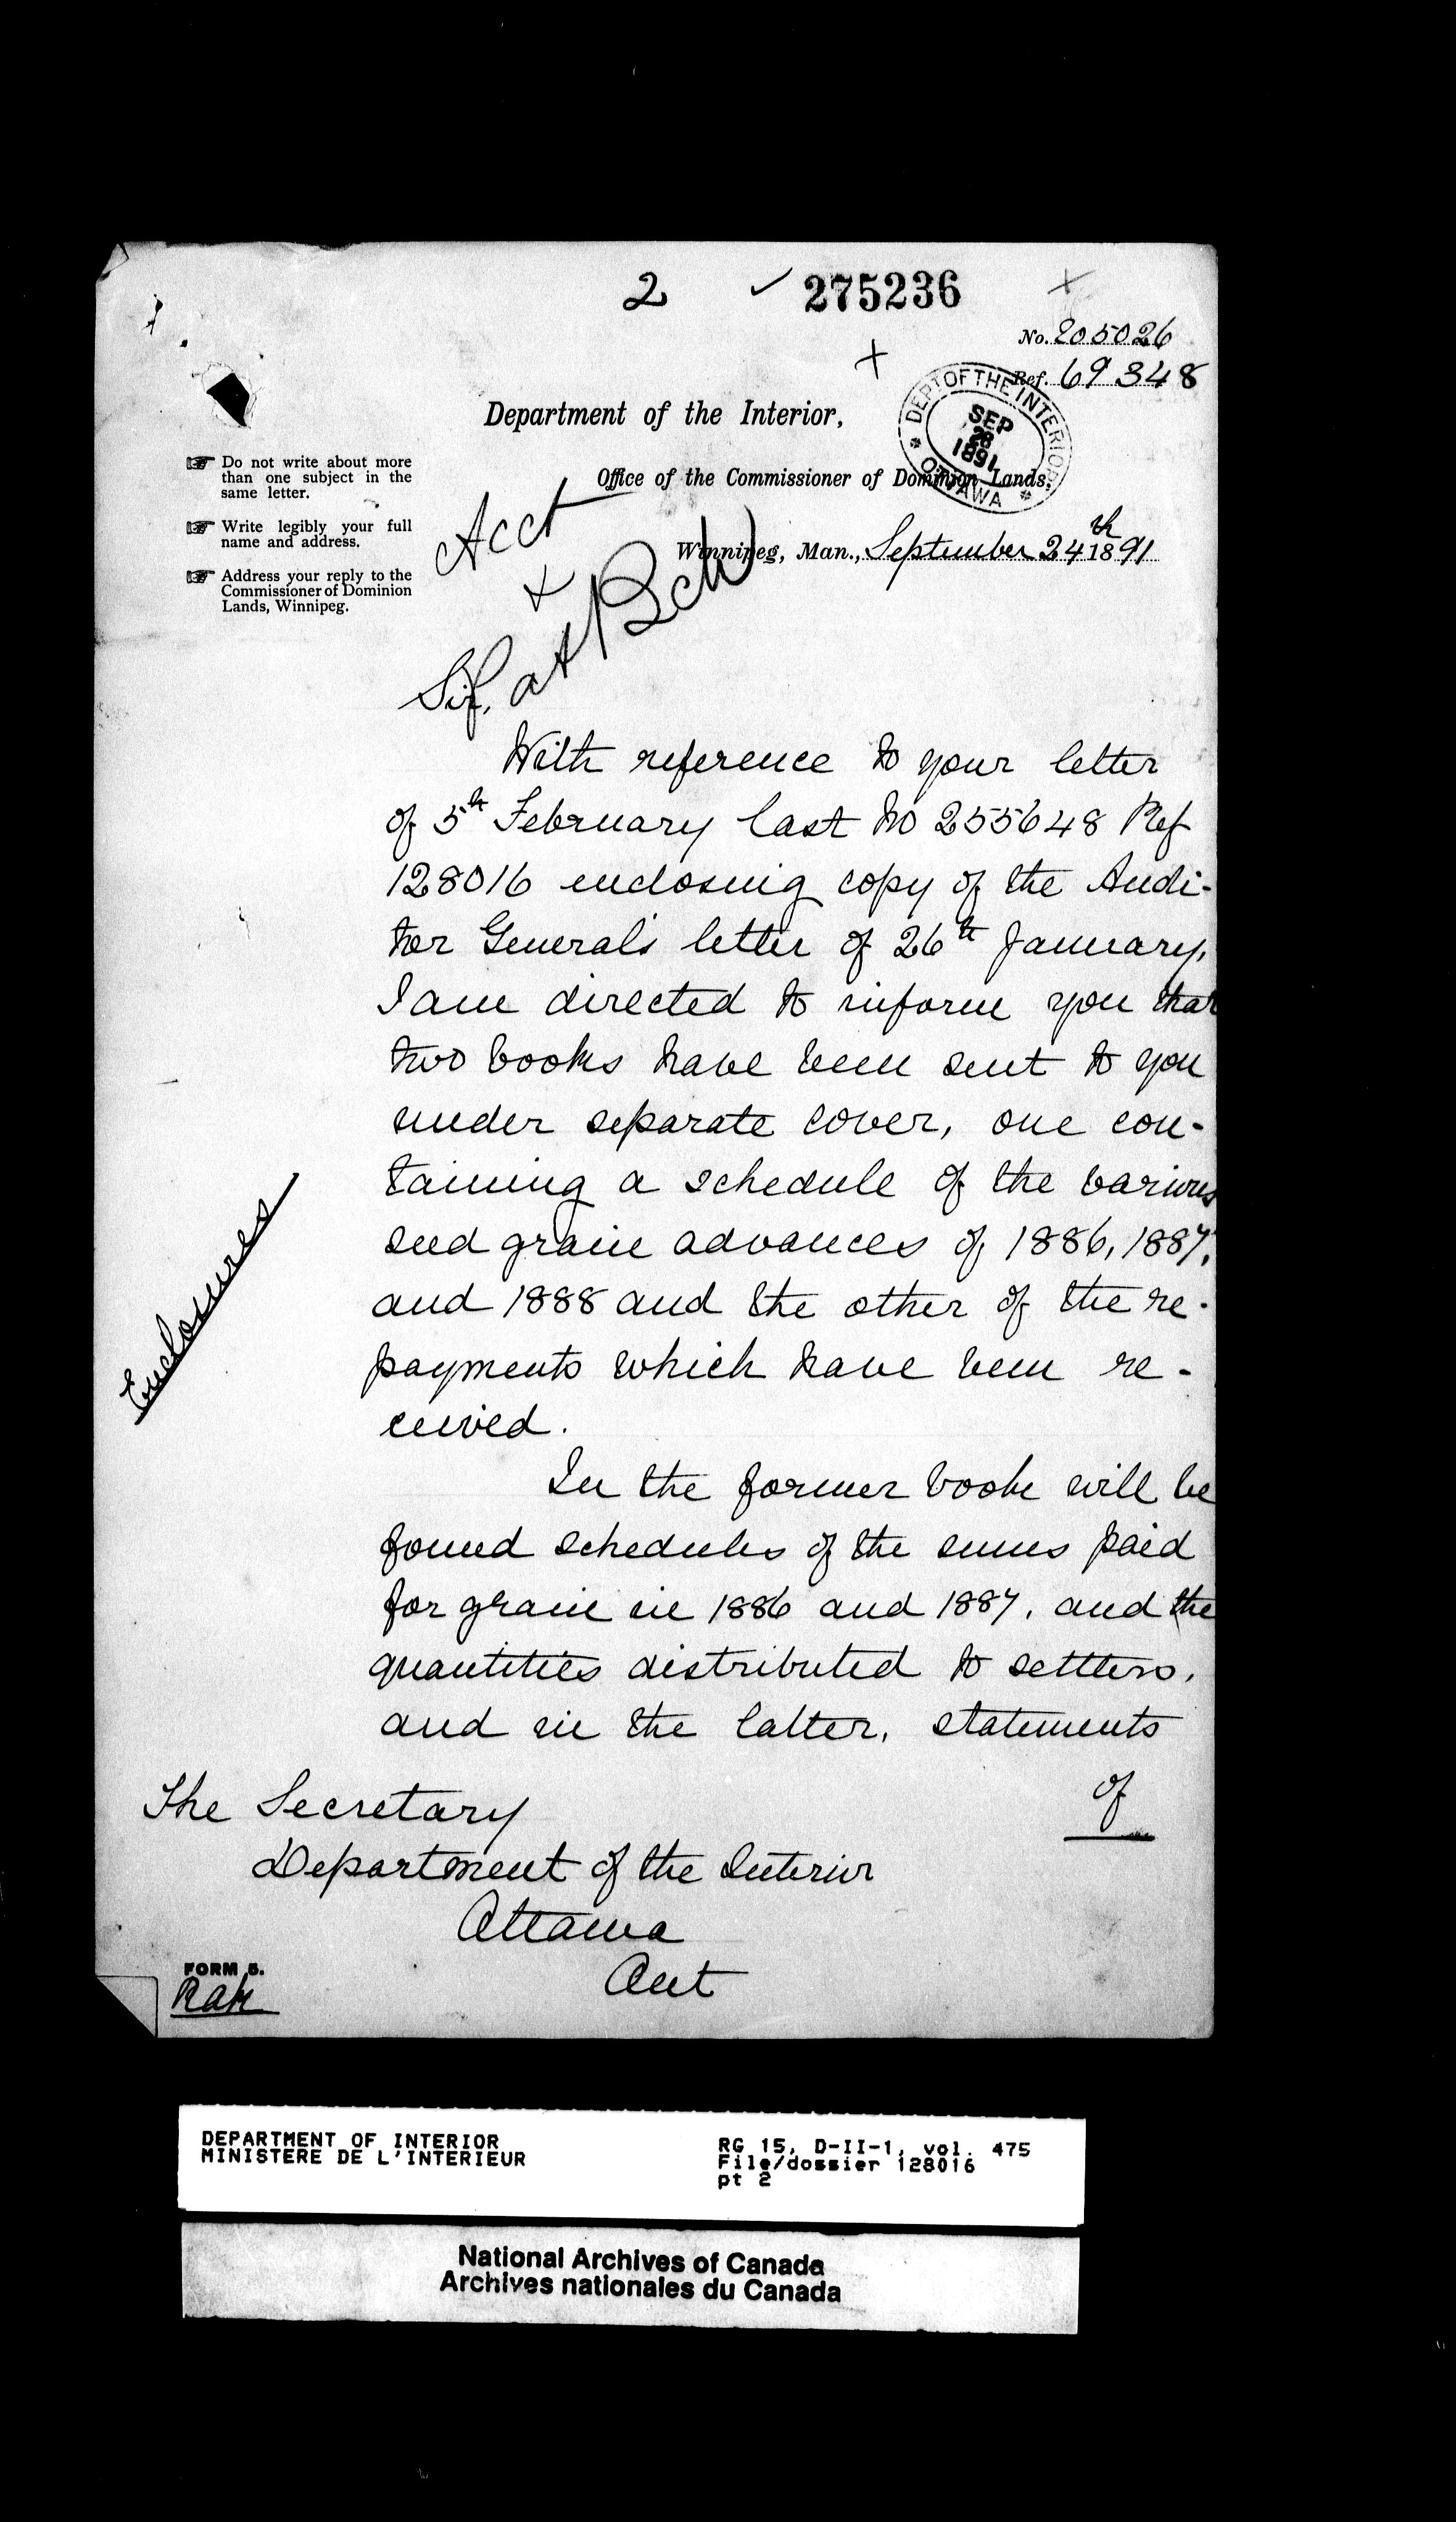 2 ✓ 275236
No. 205026
Ref. 69348
DEPT OF THE INTERIOR
SEP
28
1891
OTTAWA
Department of the Interior,
Office of the Commissioner of Dominion Lands,
Winnipeg, Man., September 24th 1891
Do not write about more
than one subject in the
same letter.
Write legibly your full
name and address.
Address your reply to the
Commissioner of Dominion
Lands, Winnipeg.
Acct
Sir,
With reference to your letter
of 5th February last No 255648 Ref
128016 enclosing copy of the Audi-
tor General's letter of 26th January,
I am directed to inform you that
two books have been sent to you
under separate cover, one con-
taining a schedule of the various
seed grain advances of 1886, 1887,
and 1888 and the other of the re-
payments which have been re-
ceived.
Enclosures
In the former book will be
found schedules of the sums paid
for grain in 1886 and 1887, and the
quantities distributed to settlers,
and in the latter, statements
of
The Secretary
Department of the Interior
Ottawa
Ont
FORM 5.
DEPARTMENT OF INTERIOR
MINISTERE DE L'INTERIEUR
RG 15, D-II-1, vol. 475
File/dossier 128016
pt 2
National Archives of Canada
Archives nationales du Canada